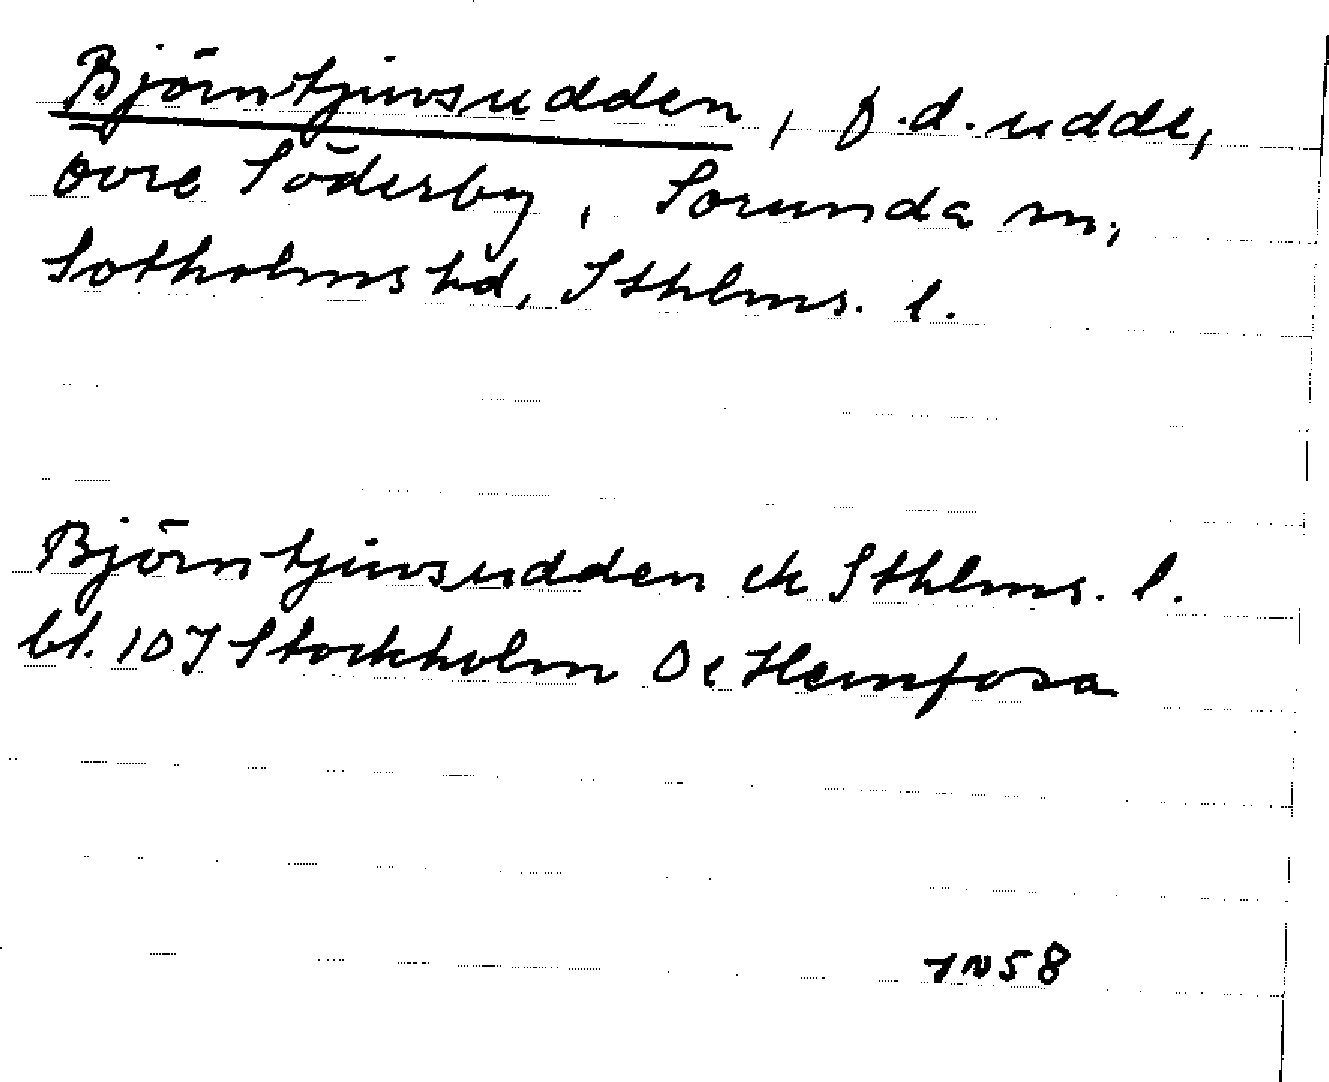 Björntjuvsudden, f.d. udde,
Övre Söderby, Sorunda sn,
Sotholms hd, Sthlms. l.
Björntjuvsudden ek Sthlms. l.
bl. 10J Stockholm Hemfosa
58